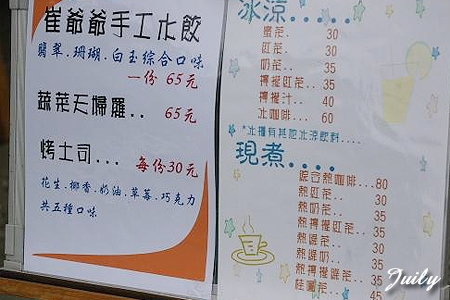 崔爺爺手工水餃
翡翠.珊瑚.白玉綜合口味
一份 65元
蔬菜天婦羅.. 65元
烤土司... 每份30元
花生.椰香.奶油.草莓.巧克力
共五種口味
冰涼.....
蜜茶. 30
紅茶. 30
奶茶. 35
檸檬紅茶.. 35
檸檬汁.. 40
冰咖啡... 60
*冰櫃有其他冰涼飲料....
現煮....
綜合熱咖啡...80
熱紅茶.. 30
熱奶茶.. 35
熱檸檬紅茶.. 35
熱綠茶.. 30
熱奶綠.. 35
熱檸檬綠茶.. 35
桂圓茶.. 45
Juily